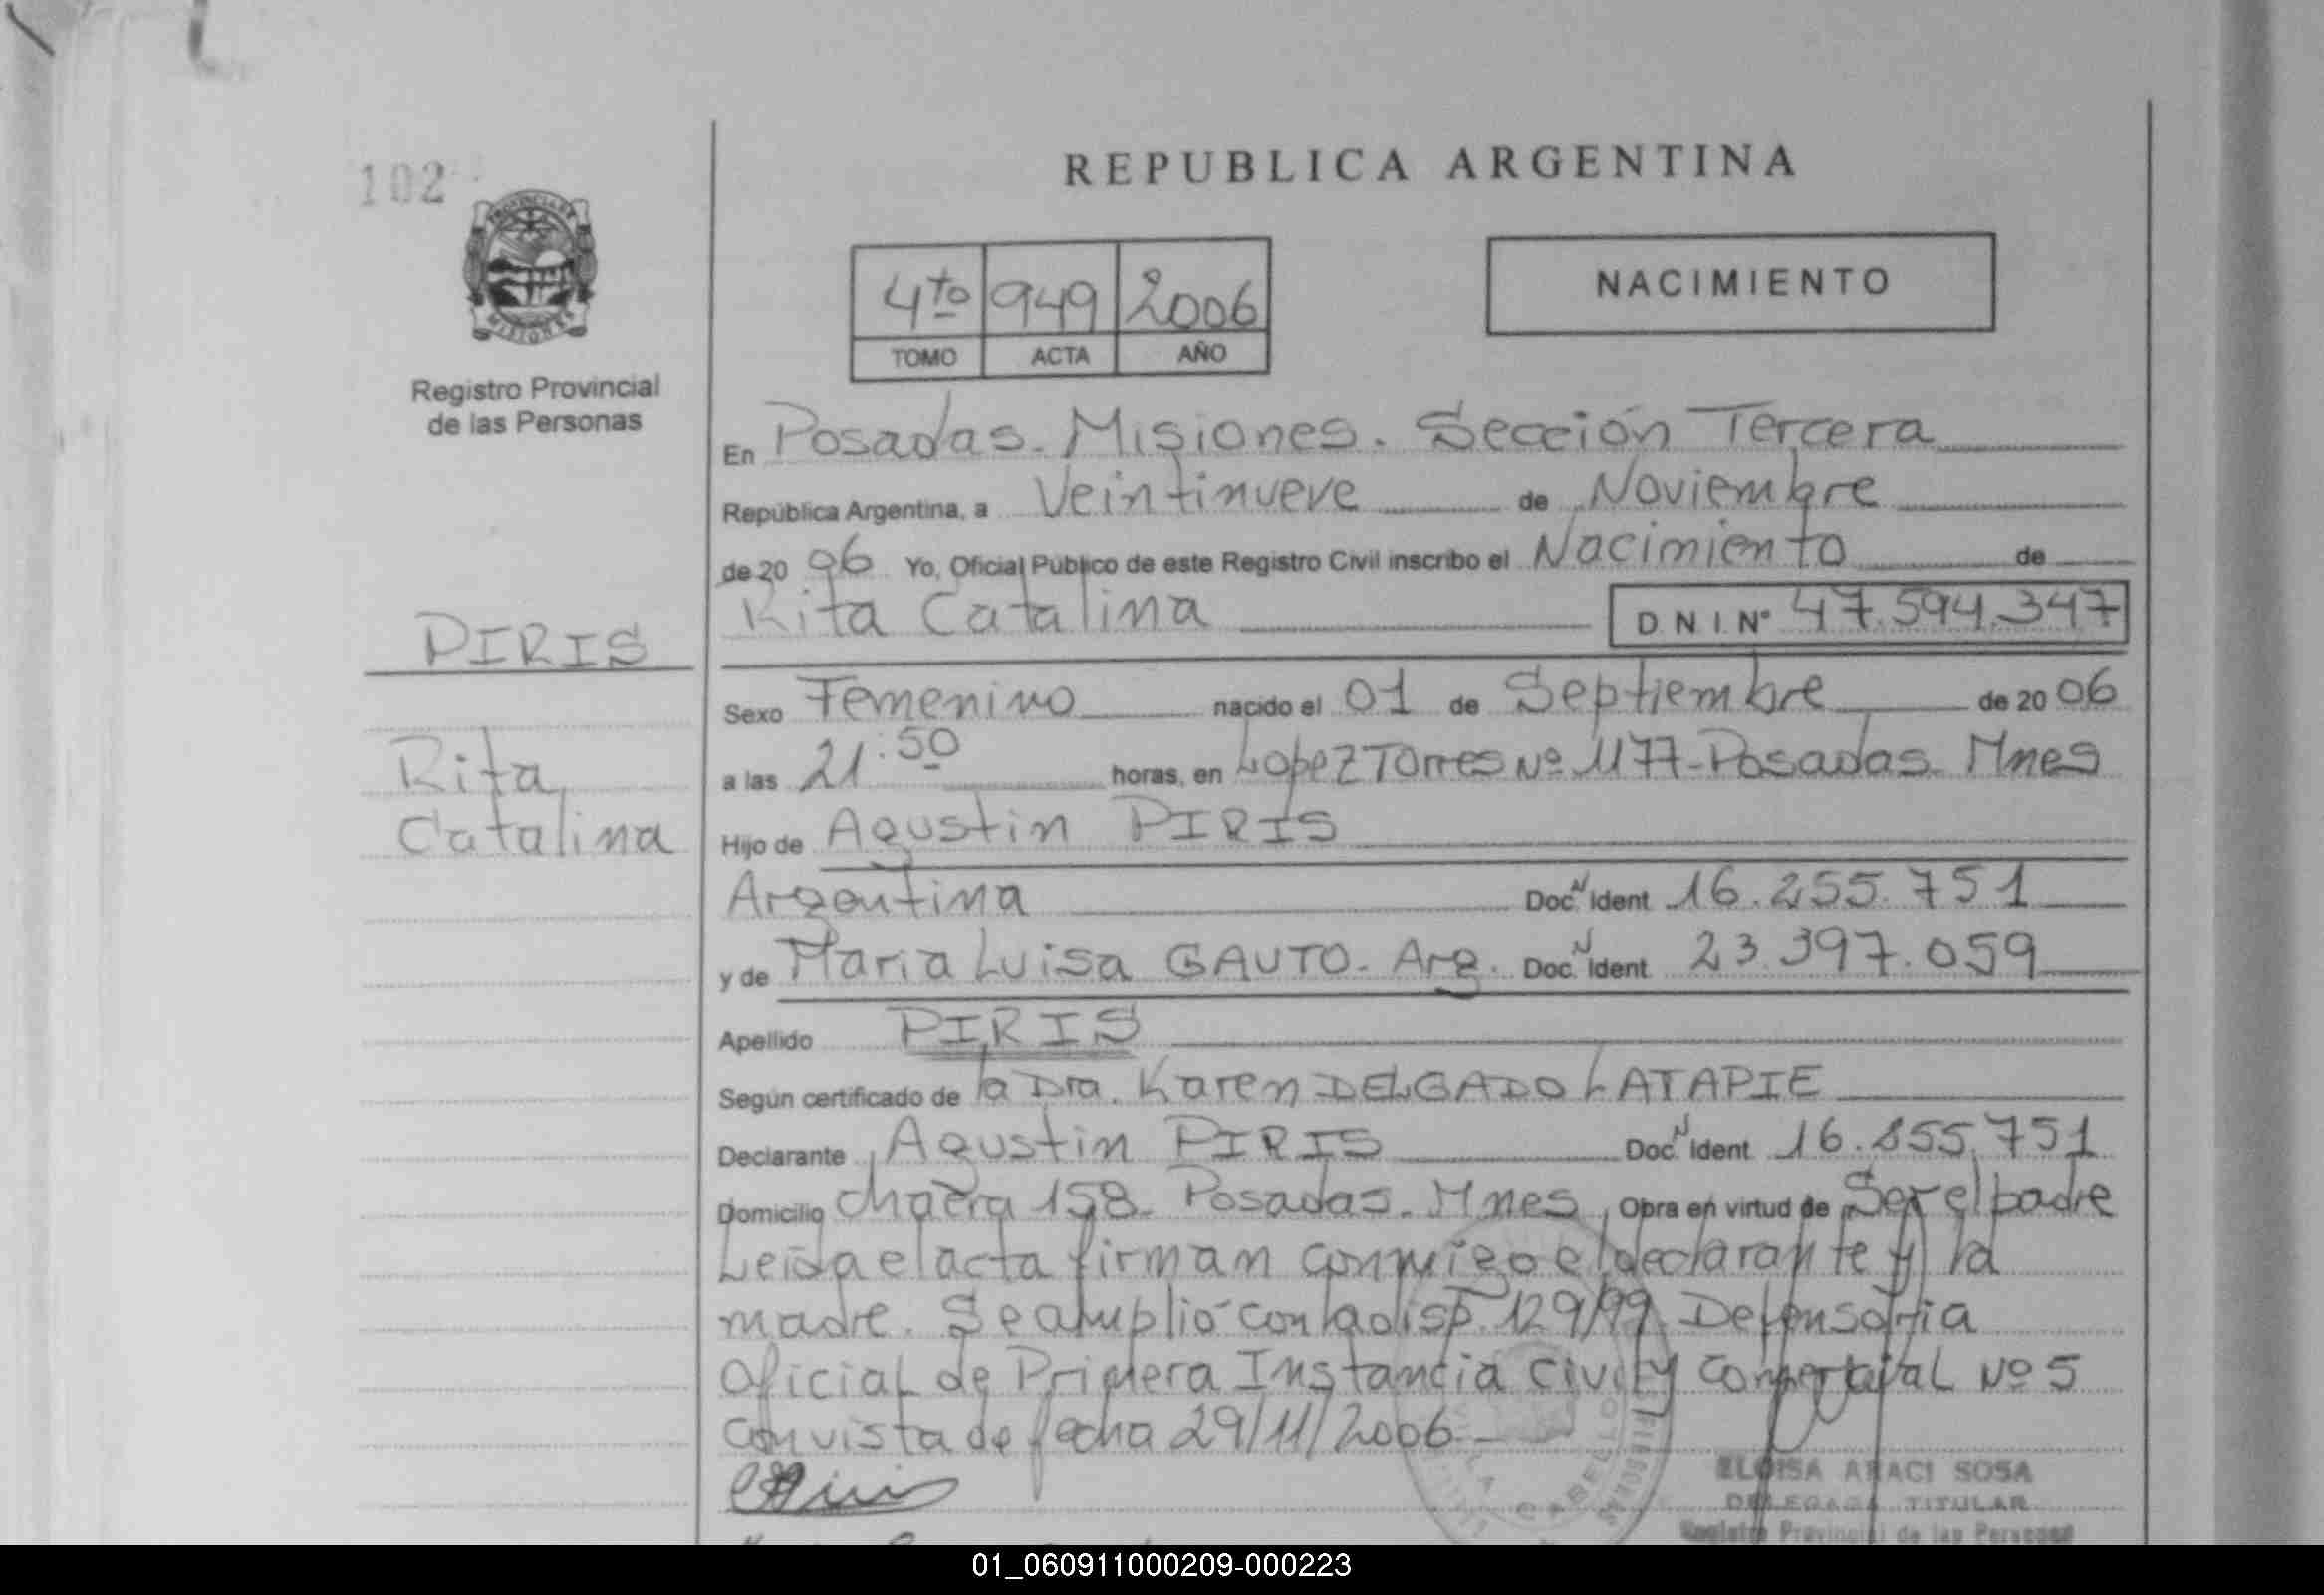 102
REPUBLICA ARGENTINA
PROVINCIA DE
MISIONES
4to 949 2006
TOMO ACTA AÑO
NACIMIENTO
Registro Provincial
de las Personas
En Posadas. Misiones. Sección Tercera
República Argentina, a Veintinueve de Noviembre
de 20 06 Yo, Oficial Público de este Registro Civil inscribo el Nacimiento de
Rita Catalina DNI Nº 47.594.347
PIRIS
Sexo Femenino nacido el 01 de Septiembre de 20 06
Rita
Catalina
a las 21:50 horas, en Lopez Torres Nº 1177-Posadas. Mnes
Hijo de Agustin PIRIS
Argentina Doc. N Ident 16.255.751
y de Maria Luisa GAUTO- Arg. Doc. N Ident 23.397.059
Apellido PIRIS
Según certificado de la Dra. Karen DELGADO LATAPIE
Declarante Agustin PIRIS Doc. N Ident 16.255.751
Domicilio chacra 158. Posadas. Mnes Obra en virtud de Ser el padre
Leida el acta firman conmigo el declarante y la
madre. Se amplió con la disp. 129/99 Defensoria
Oficial de Primera Instancia Civil y Comercial Nº 5
con vista de fecha 29/11/2006-
ELOISA ARACI SOSA
DELEGADA TITULAR
Registro Provincial de las Personas
01_060911000209-000223